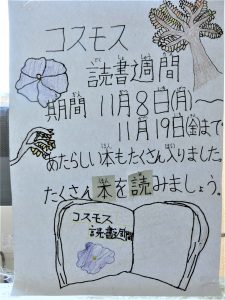 コスモス
読書週間
期間 11月8日(月)〜
11月19日(金)まで
あたらしい本もたくさん入りました。
たくさん本を読みましょう。
コスモス
読書週間